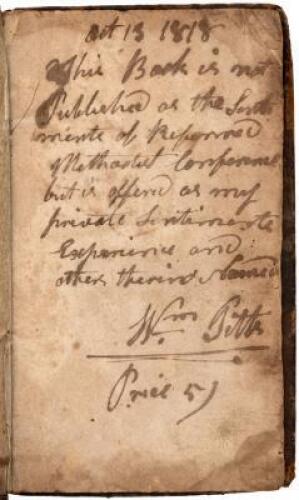 Oct 13 1818
This Book is not
Published as the Senti
ments of Reformed
Methodist Conference
but is offerd as my
private Sentiments
Experience and
others therind Named
Wm Pitts
Price 5)